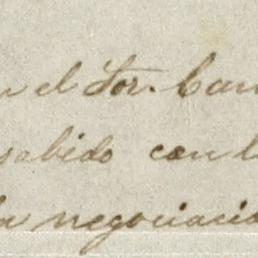 n el Sor. Cam
sabido con l
la negociacio